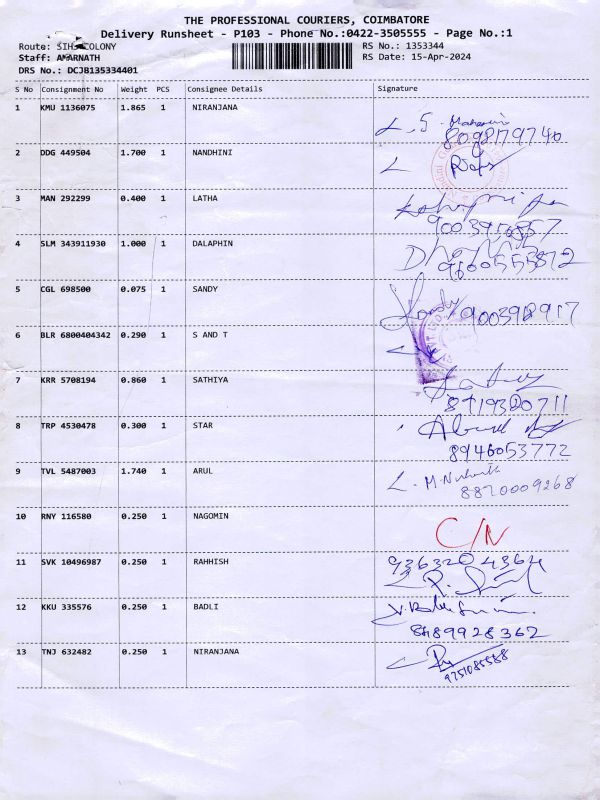 THE PROFESSIONAL COURIERS, COIMBATORE
Delivery Runsheet - P103 - Phone No.:0422-3505555 - Page No.:1
Route: SIHS COLONY
RS No.: 1353344
Staff: AMARNATH
RS Date: 15-Apr-2024
DRS No.: DCJB135334401
S No Consignment No Weight PCS Consignee Details Signature
1 KMU 1136075 1.865 1 NIRANJANA
8098179740
2 DDG 449504 1.700 1 NANDHINI
3 MAN 292299 0.400 1 LATHA
4 SLM 343911930 1.000 1 DALAPHIN
9600555872
5 CGL 698500 0.075 1 SANDY
Sandy 900398917
6 BLR 6800404342 0.290 1 S AND T
7 KRR 5708194 0.860 1 SATHIYA
8 TRP 4530478 0.300 1 STAR
8946053772
9 TVL 5487003 1.740 1 ARUL
8870009268
10 RNY 116580 0.250 1 NAGOMIN
C/N
11 SVK 10496987 0.250 1 RAHHISH
9363204364
12 KKU 335576 0.250 1 BADLI
8489928362
13 TNJ 632482 0.250 1 NIRANJANA
9751085588